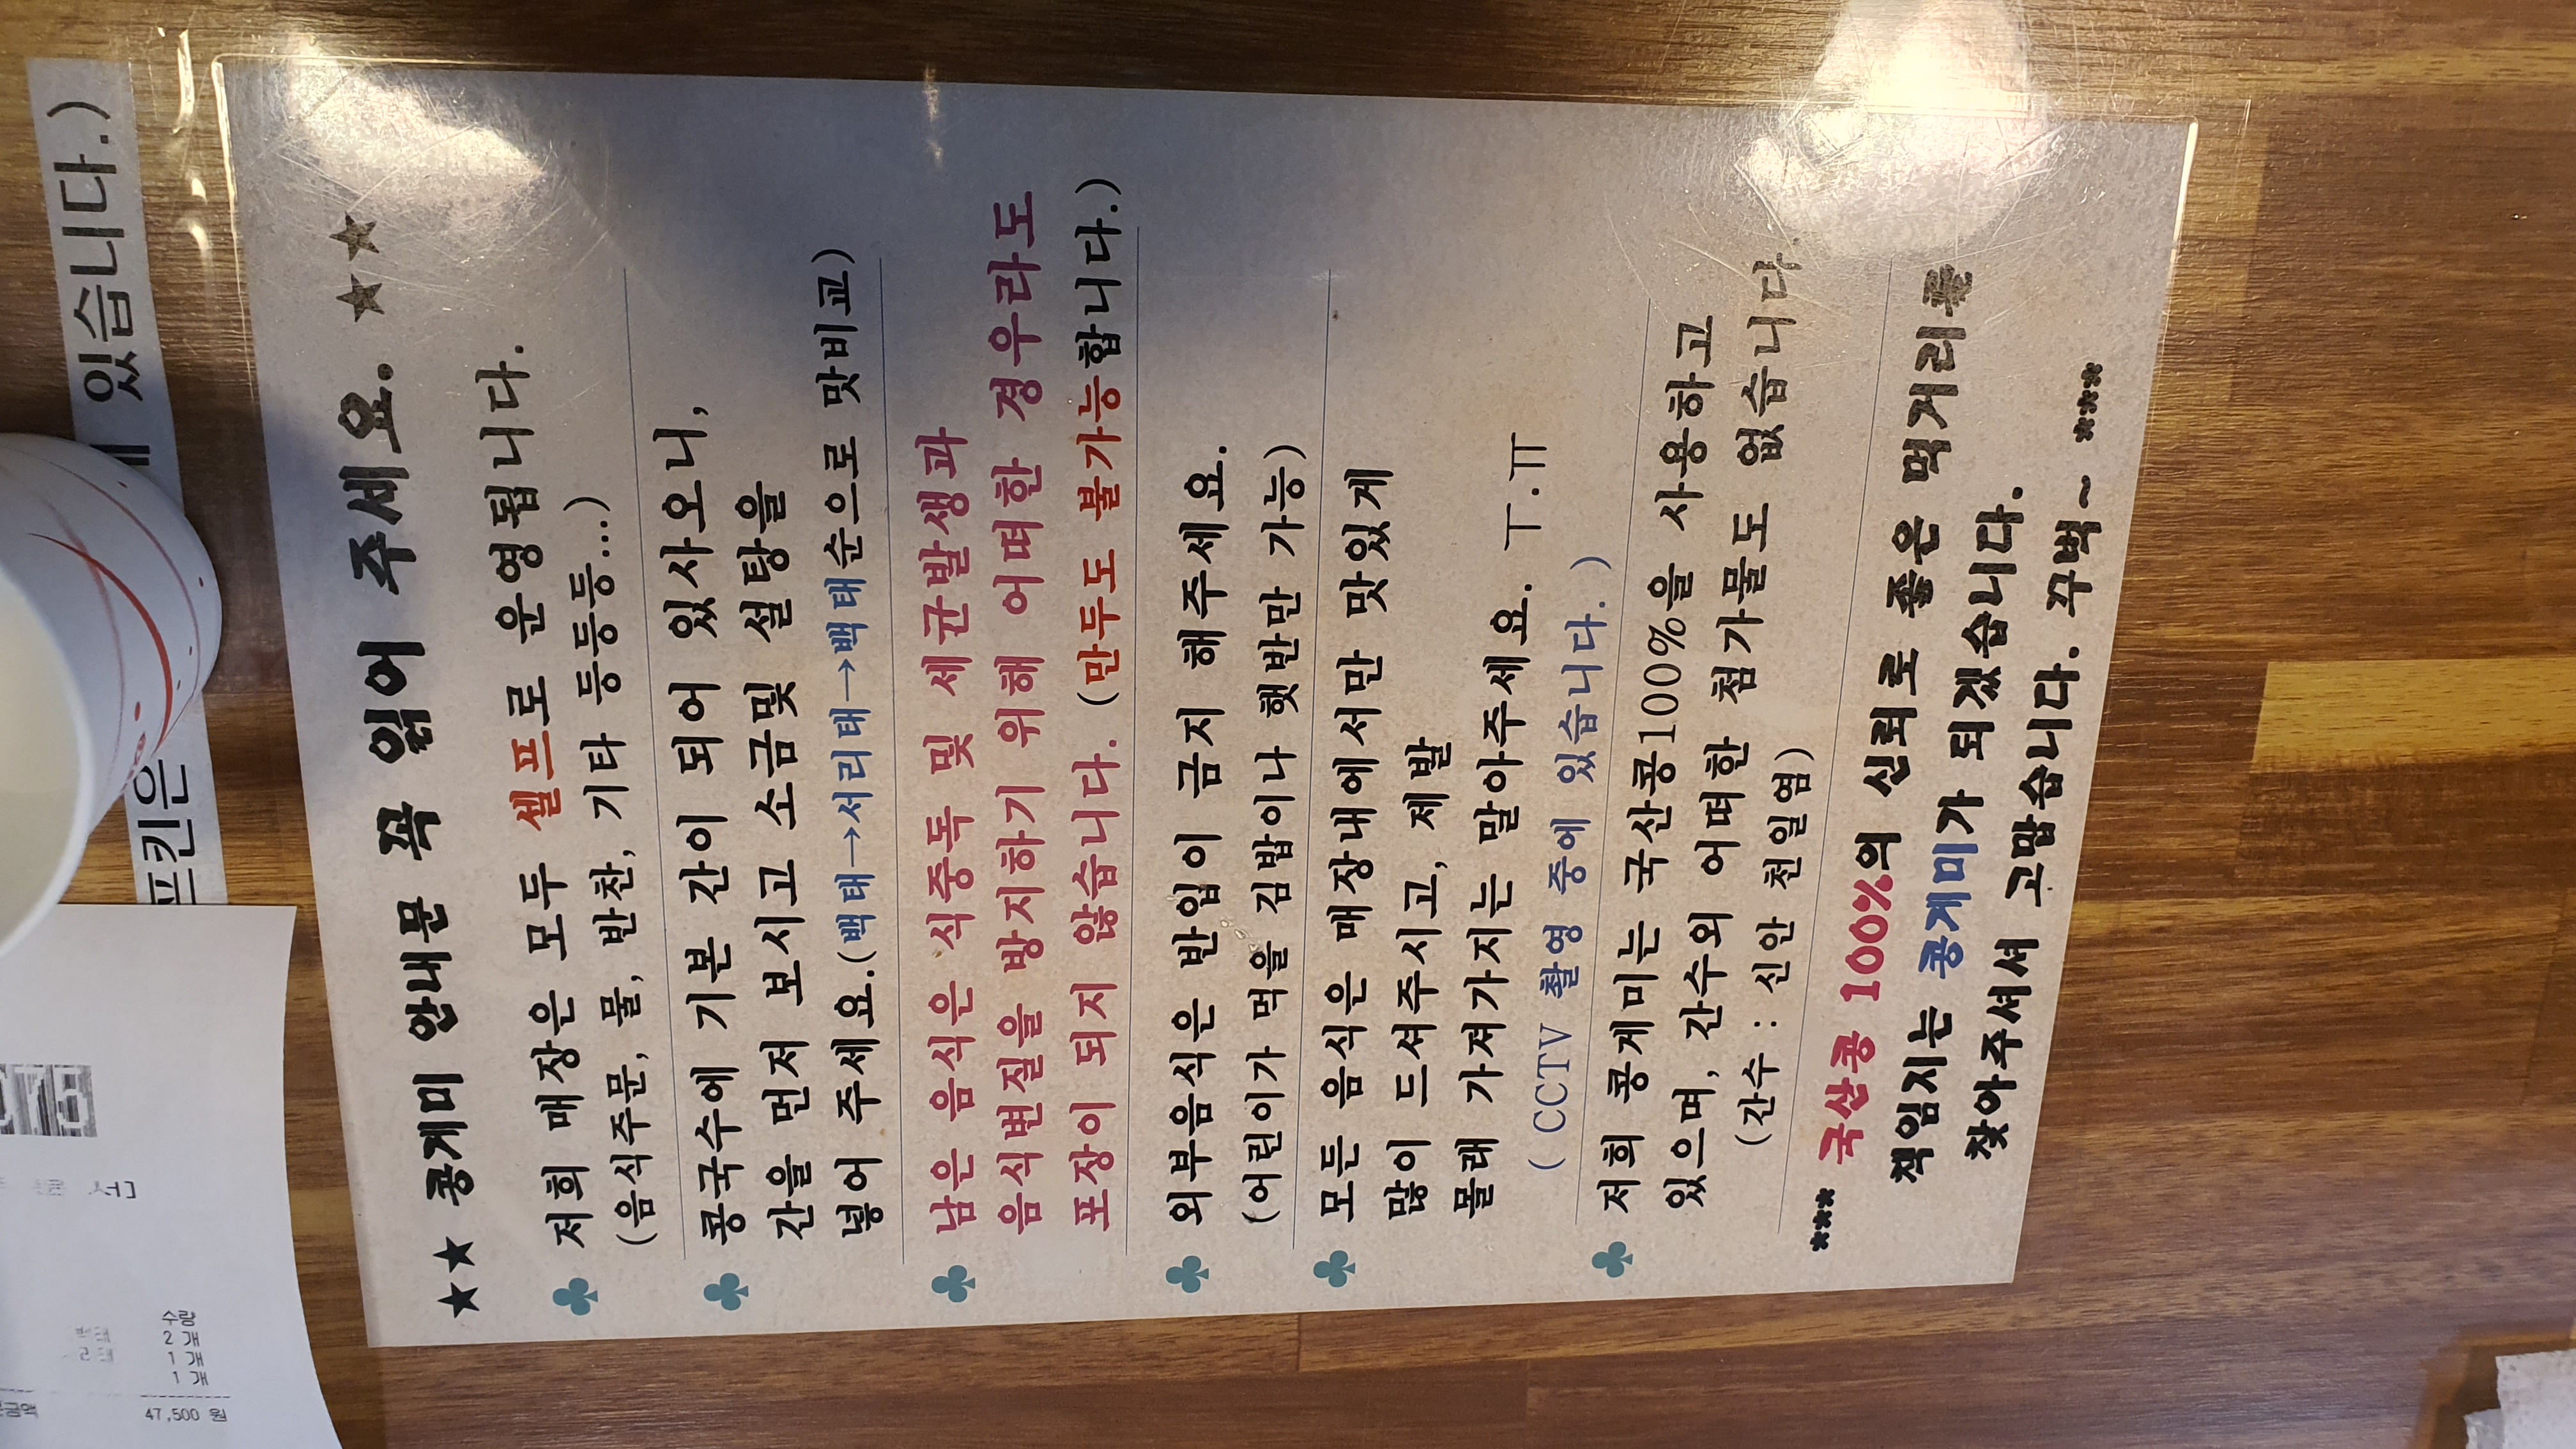 ★★ 콩게미 안내문 꼭 읽어 주세요. ★★
♣ 저희 매장은 모두 셀프로 운영됩니다.
(음식주문, 물, 반찬, 기타 등등등...)
♣ 콩국수에 기본 간이 되어 있사오니,
간을 먼저 보시고 소금및 설탕을
넣어 주세요.(백태→서리태→백태순으로 맛비교)
♣ 남은 음식은 식중독 및 세균발생과
음식변질을 방지하기 위해 어떠한 경우라도
포장이 되지 않습니다. (만두도 불가능합니다.)
♣ 외부음식은 반입이 금지 해주세요.
(어린이가 먹을 김밥이나 햇반만 가능)
♣ 모든 음식은 매장내에서만 맛있게
많이 드셔주시고, 제발
몰래 가져가지는 말아주세요. ㅜ.ㅠ
( CCTV 촬영 중에 있습니다. )
♣ 저희 콩게미는 국산콩100%을 사용하고
있으며, 간수외 어떠한 첨가물도 없습니다.
(간수 : 신안 천일염)
**** 국산콩 100%의 신뢰로 좋은 먹거리를
책임지는 콩게미가 되겠습니다.
찾아주셔서 고맙습니다. 꾸벅~ ****
프킨은
있습니다.)
수량
2 개
1 개
1 개
47,500 원